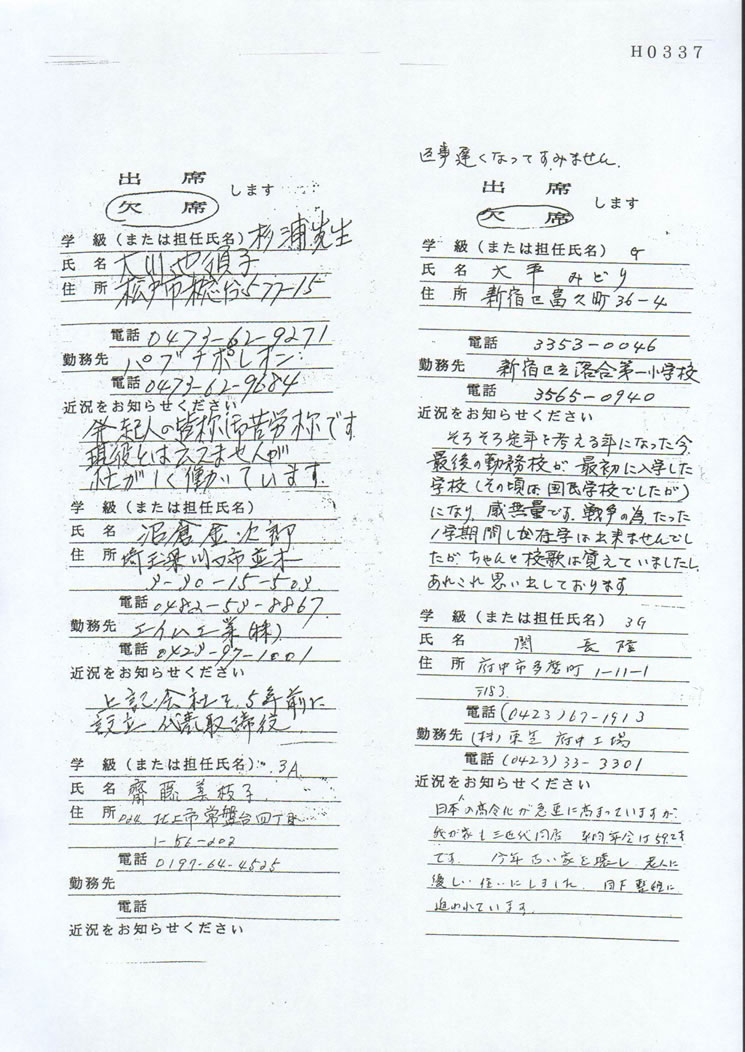 H0337
出席
欠席 します
学級(または担任氏名) 杉浦先生
氏名 大川 子
住所 松戸市 台577-15
電話 0473-62-9271
勤務先 パブ ナポレオン
電話 0473-62-9684
近況をお知らせください
発起人の皆称御苦労称です
現役とは云えませんが
忙がしく働いています。
学級(または担任氏名)
氏名 沼倉金次郎
住所 埼玉県川口市並木
3-30-15-503
電話 0482-53-8867
勤務先 エイム工業(株)
電話 0423-97-1001
近況をお知らせください
上記会社を、5年前に
設立、代表取締役
学級(または担任氏名) 3A
氏名 齋藤美枝子
住所 024 北上市常盤台四丁目
1-56-202
電話 0197-64-4525
勤務先
電話
近況をお知らせください
返事遅くなってすみません。
出席
欠席 します
学級(または担任氏名) G
氏名 大平みどり
住所 新宿区富久町36-4
電話 3353-0046
勤務先 新宿区立落合第一小学校
電話 3565-0940
近況をお知らせください
そろそろ定年を考える年になった今、
最後の勤務校が、最初に入学した
学校(その頃は、国民学校でしたが)
になり、感無量です。戦争の為、たった
1学期間しか在学は出来ませんでし
たが、ちゃんと校歌は覚えていましたし、
あれこれ思い出しております
学級(または担任氏名) 3G
氏名 関長隆
住所 府中市多磨町1-11-1
〒183
電話 (0423)67-1913
勤務先 (株)東芝 府中工場
電話 (0423)33-3301
近況をお知らせください
日本人の高令化が急速に高まっていますが、
我が家も三世代同居 平均年令は59.2才
です。 今年古い家を壊し、老人に
優しい住いにしました。目下整理に
追われています。